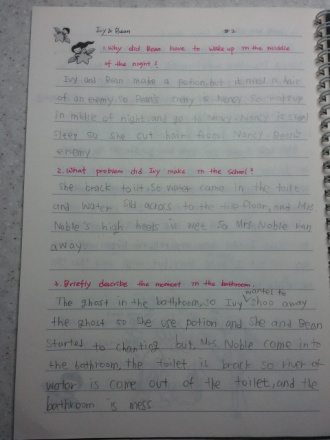 Ivy & Bean #2
1. Why did Bean have to wake up in the middle
of the night?
Ivy and Bean make a potion, but it need a hair
of an enemy so Bean's enemy is Nancy so wake up
in midle of night and go to Nancy Nancy is still
sleep so she cut hair from Nancy Bean's
enemy
2. What problem did Ivy make in the school?
She brack toilt. So water came in the toilt
and water fild across to the tile floor, and Mrs
Noble's high heels is wet so Mrs Noble run
away
Briefly describe the moment in the bathroom.
wanted to
The ghost in the bathroom, so Ivy shoo away
the ghost so she use potion and she and Bean
started to chanting but, Mrs. Noble came into
the bathroom, the toilet is brack so river of
water is come out of the toilet, and the
bathroom is mess